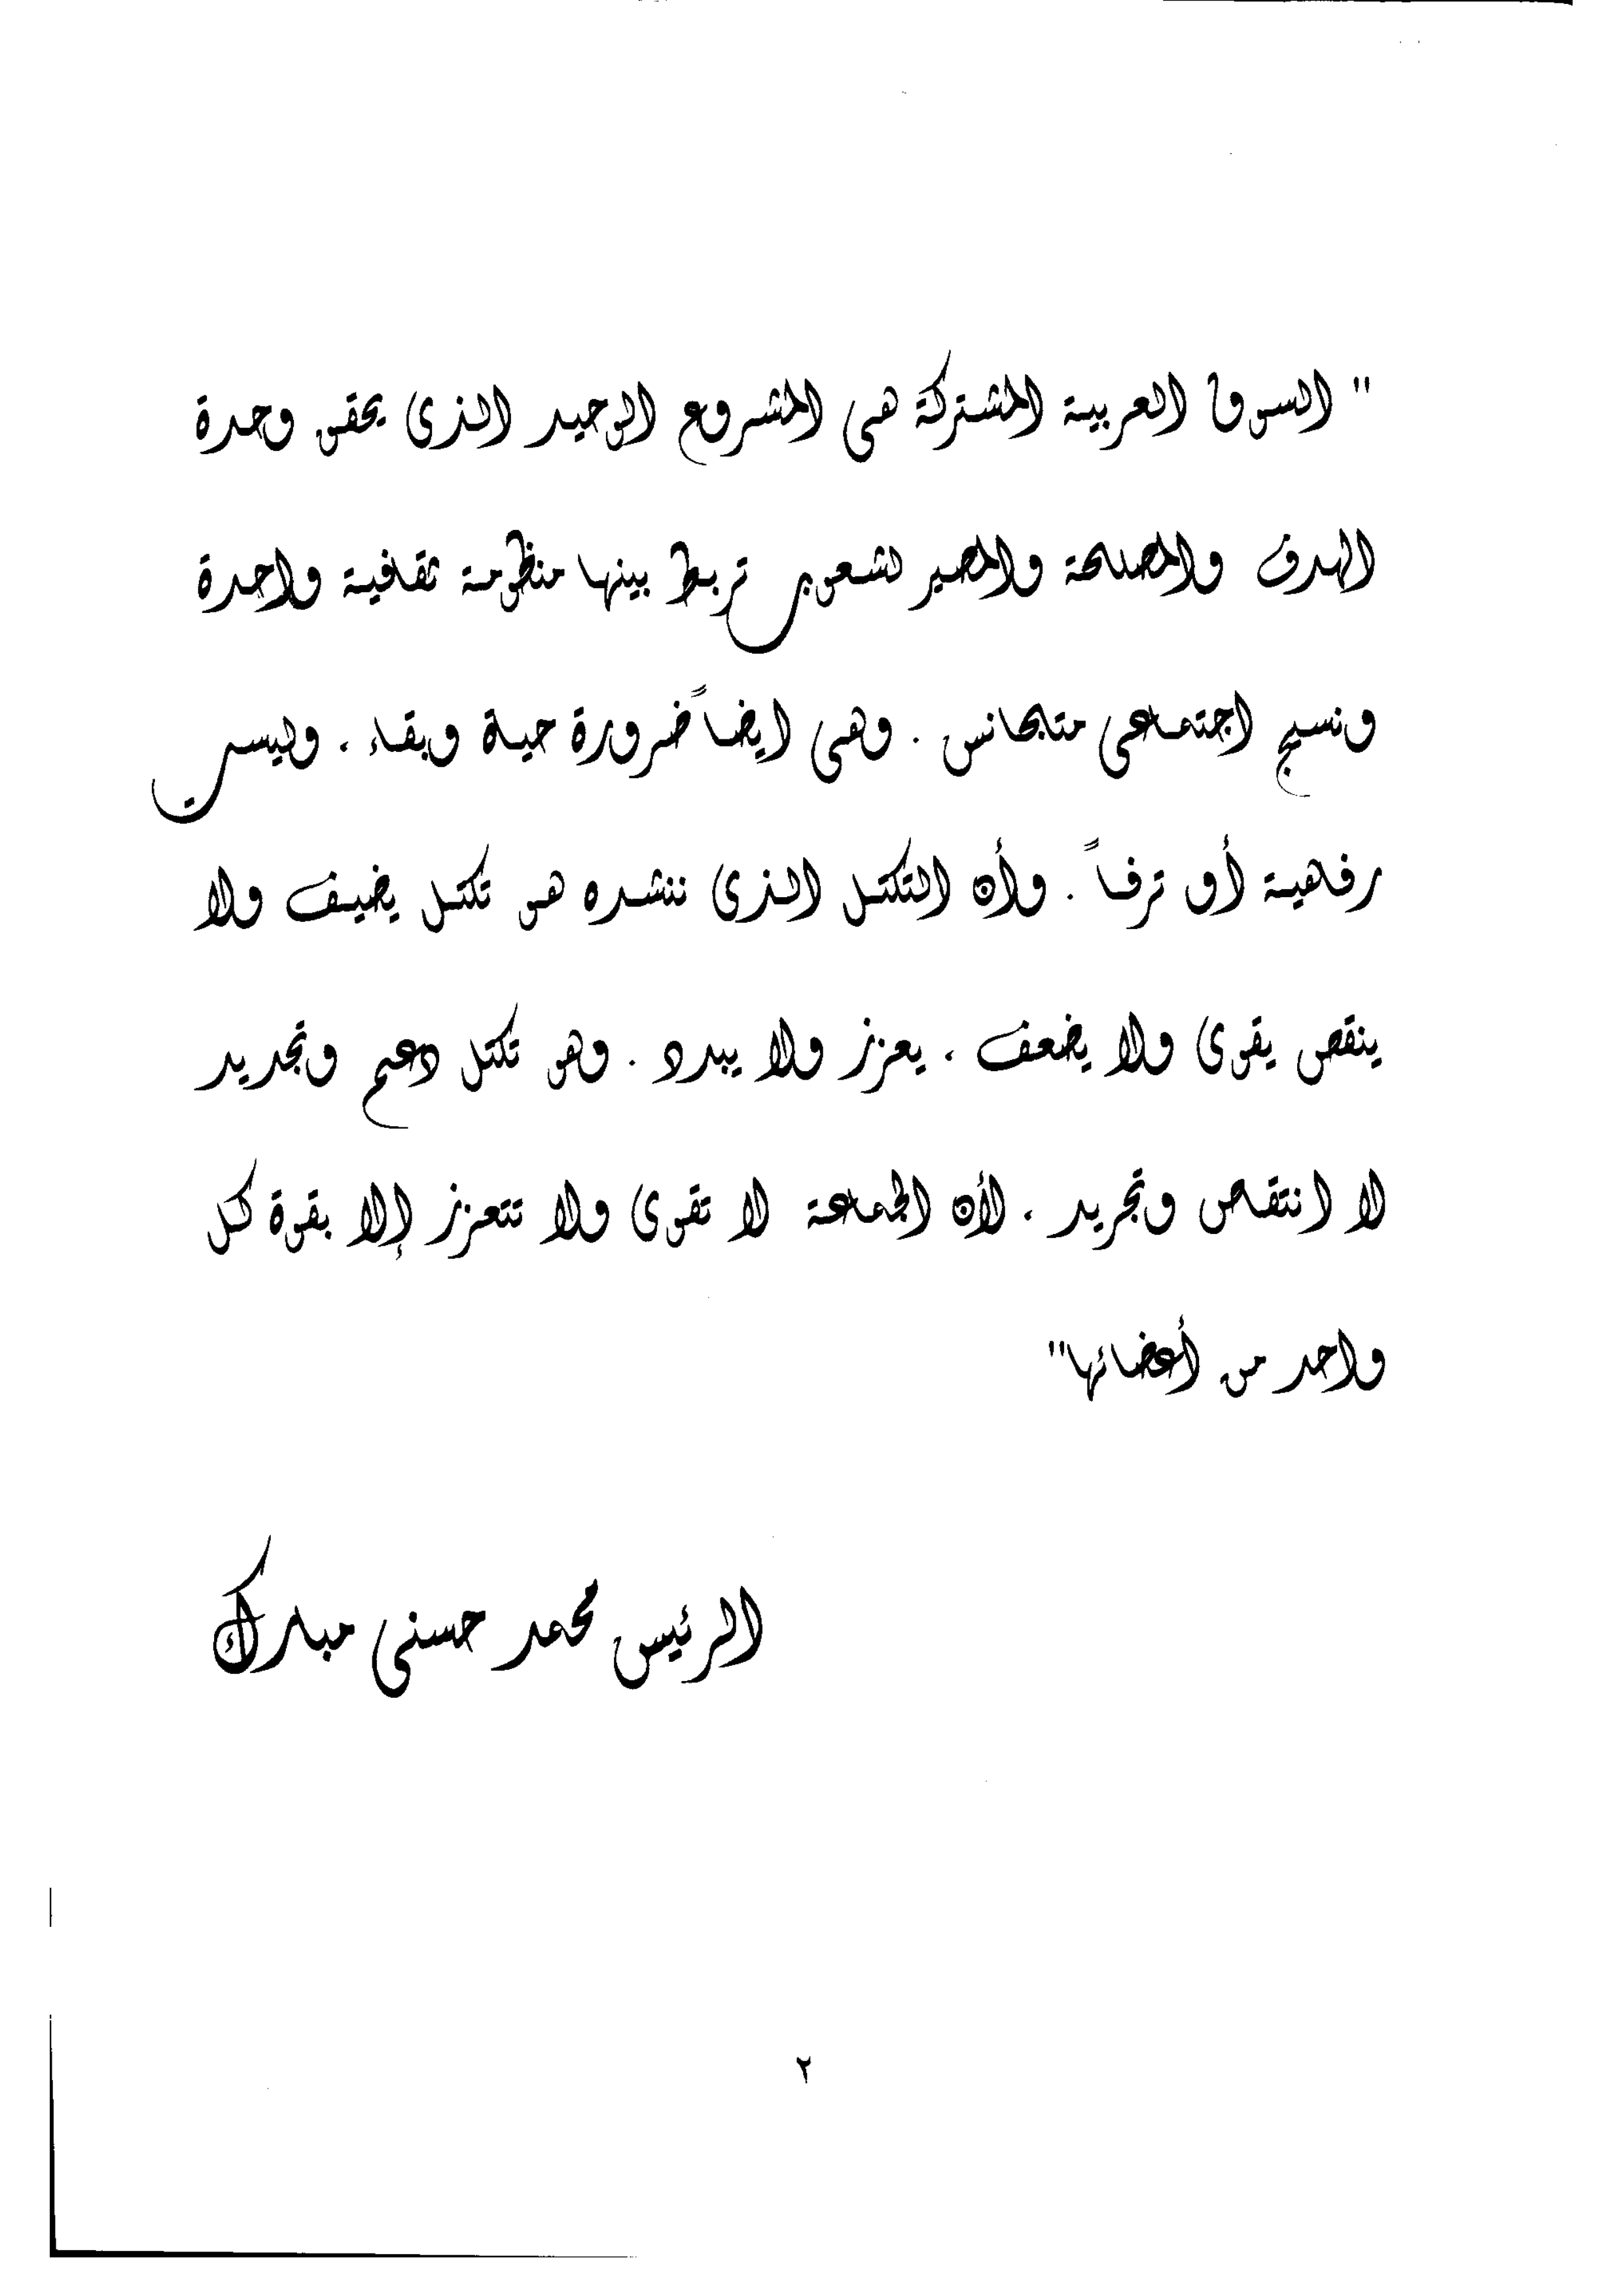 " السوق العربية المشتركة هى المشروع الوحيد الذى يحقق وحدة
الهدف والمصلحة والمصير لشعوب تربط بينها منظومة ثقافية واحدة
ونسيج اجتماعى متجانس . وهى ايضاً ضرورة حياة وبقاء . وليست
رفاهية أو ترفاً . وأن التكتل الذى ننشده هو تكتل يضيف ولا
ينقص يقوى ولا يضعف . يعزز ولا يبدد . وهو تكتل دعم وتجديد
لا انتقاص وتجريد . لأن الجماعة لا تقوى ولا تتعزز إلا بقوة كل
واحد من أعضائها"
الرئيس محمد حسنى مبارك
٢